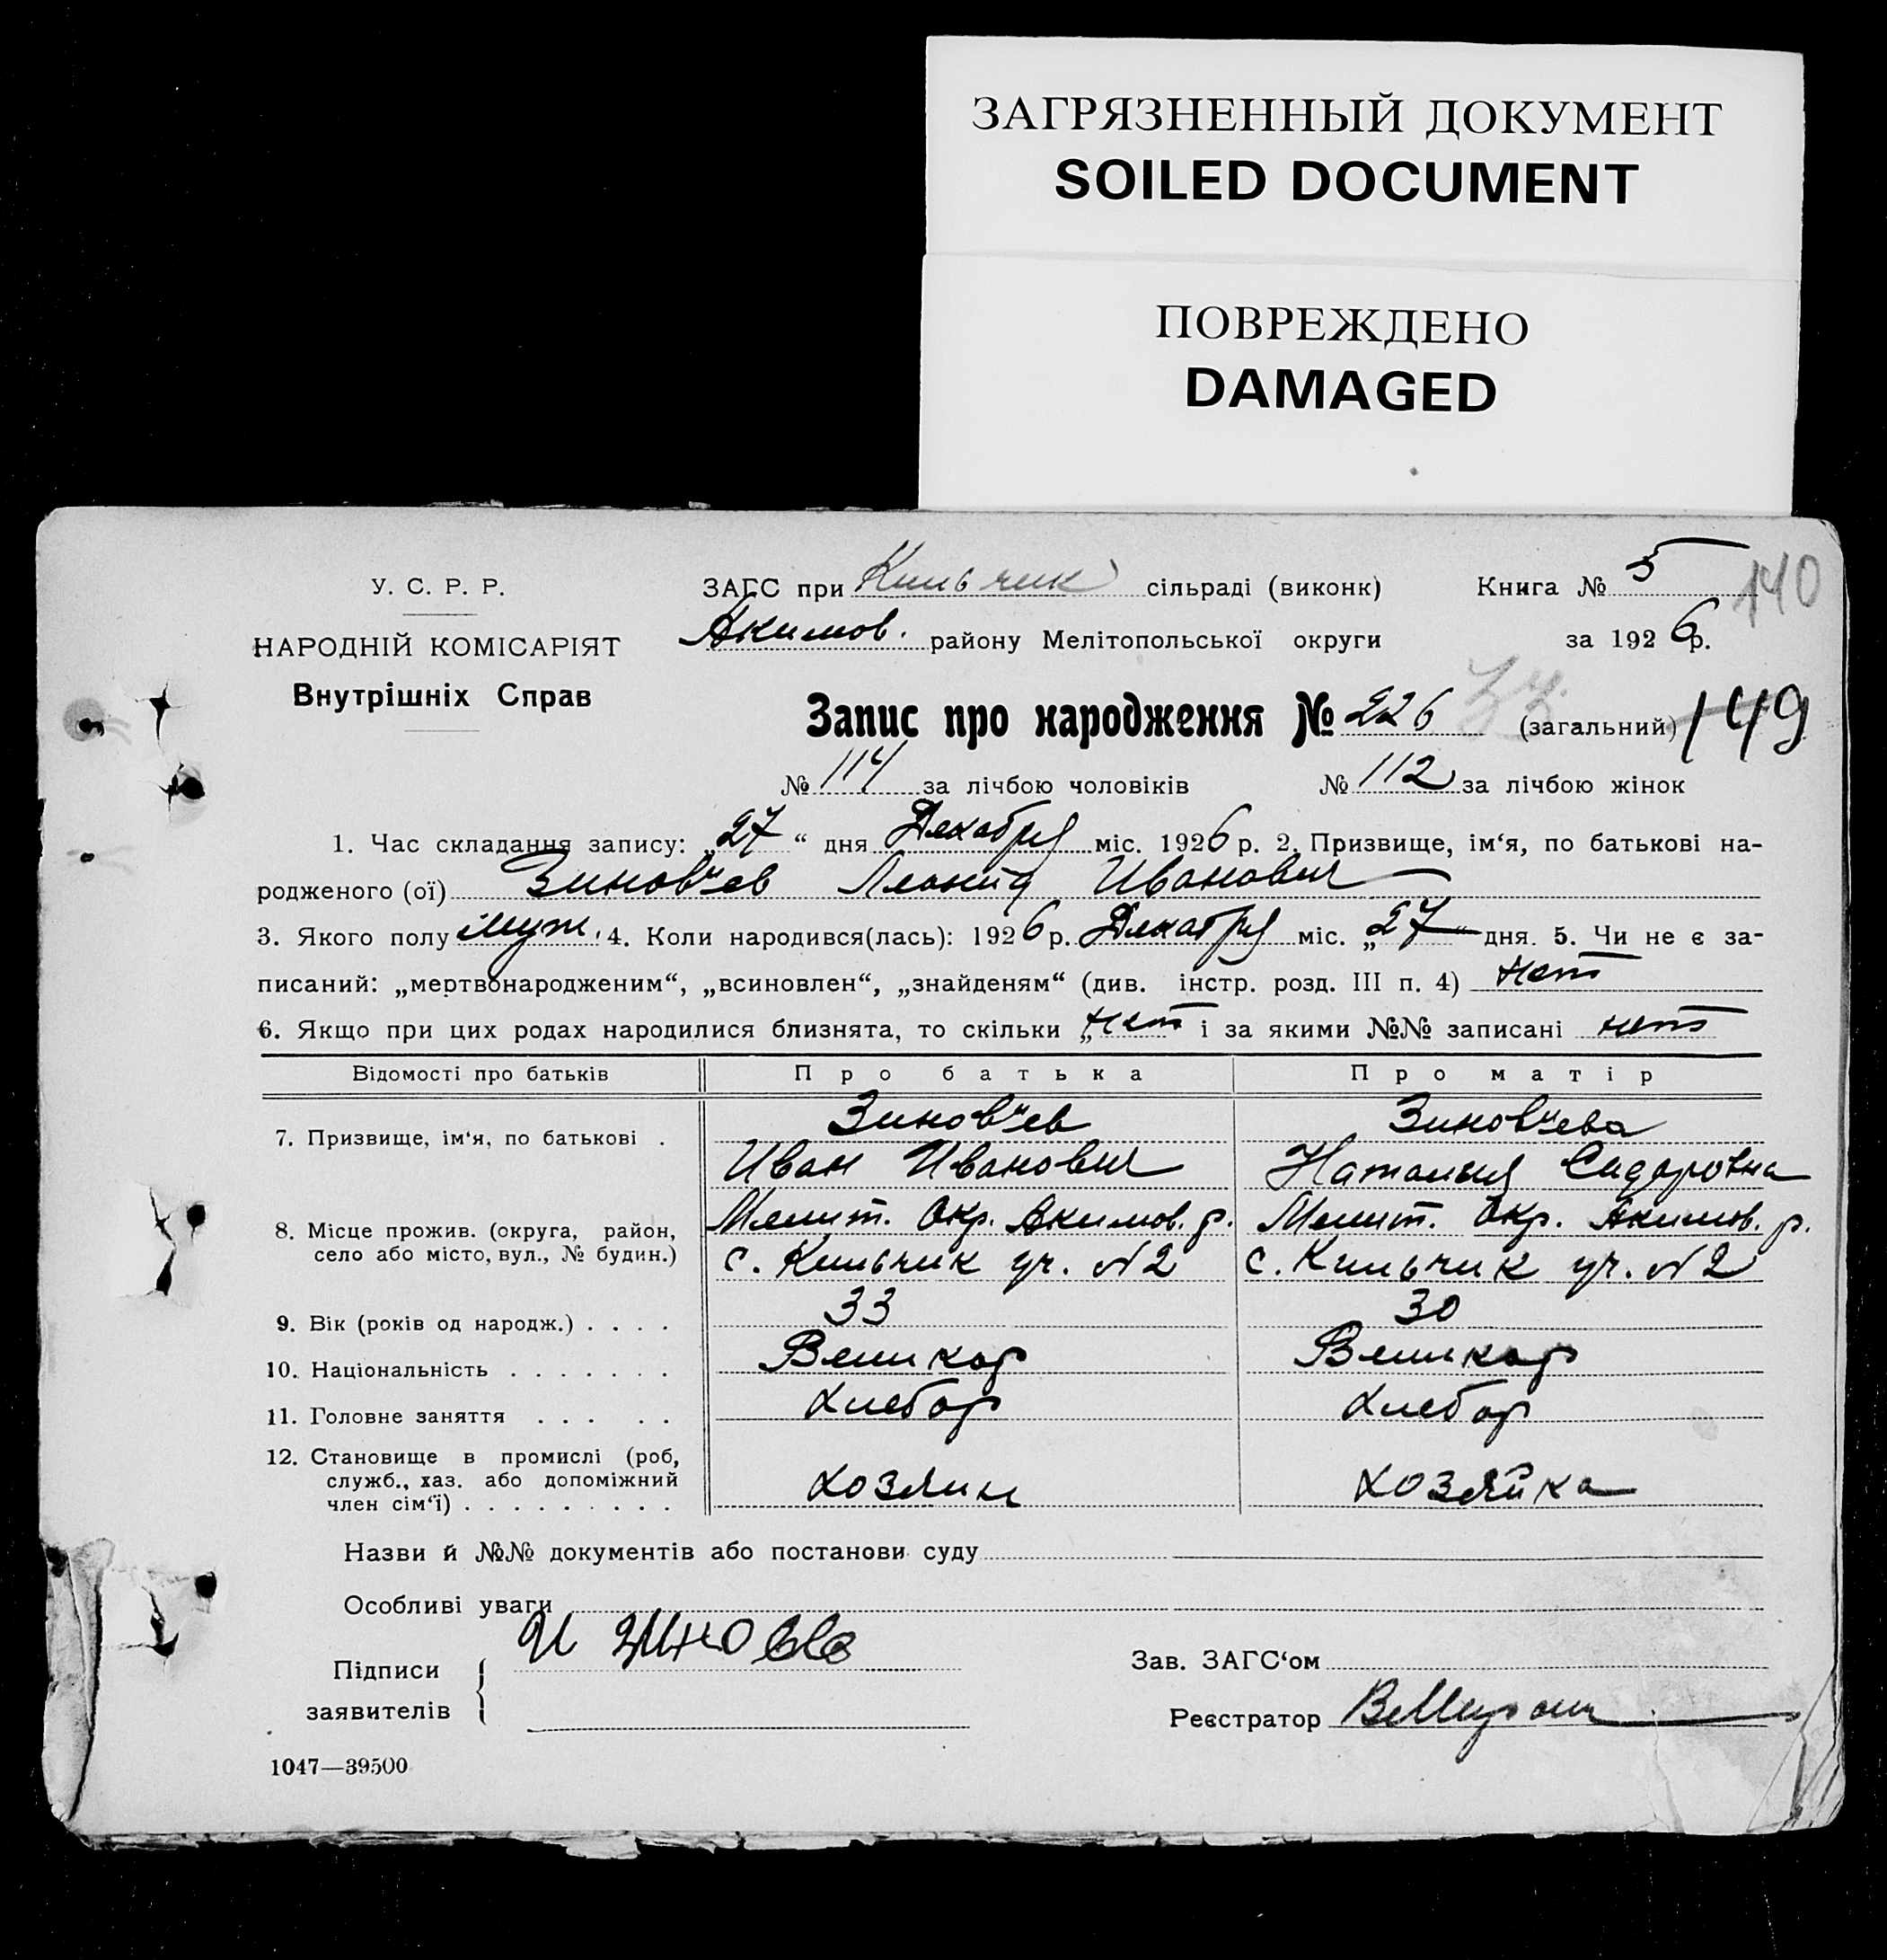 ЗАГРЯЗНЕННЫЙ ДОКУМЕНТ
SOILED DOCUMENT
ПОВРЕЖДЕНО
DAMAGED
У. С. Р. Р.
НАРОДНІЙ КОМІСАРІЯТ
Внутрішніх Справ
ЗАГС при Кильчик сільраді (виконк) Книга № 5 140
Акимов. району Мелітопольської округи за 1926 р.
Запис про народження № 226 (загальний) 149
№ 114 за лічбою чоловіків № 112 за лічбою жінок
1. Час складання запису: „27“ дня Декабря міс. 1926 р. 2. Призвище, ім‘я, по батькові на-
родженого (ої) Зиновъев Леонид Иванович
3. Якого полу муж. 4. Коли народився(лась): 1926 р. Декабря міс. „27“ дня. 5. Чи не є за-
писаний: „мертвонародженим“, „всиновлен“, „знайденям“ (див. інстр. розд. III п. 4) нет
6. Якщо при цих родах народилися близнята, то скільки „нет і за якими №№ записані нет
Відомості про батьків Про батька Про матір
7. Призвище, ім‘я, по батькові . Зиновъев Зиновъева
Иван Иванович Наталия Сидоровна
8. Місце прожив. (округа, район, Мелит. Окр. Акимов. р. Мелит. Окр. Акимов. р.
село або місто, вул., № будин.) с. Кильчик уч. N2 с. Кильчик уч. N2
9. Вік (років од народж.) . . . . 33 30
10. Національність . . . . . . . Великор Великор
11. Головне заняття . . . . . Хлебор Хлебор
12. Становище в промислі (роб,
служб., хаз. або допоміжний хозяин хозяйка
член сім‘ї) . . . . . . . . .
Назви й №№ документів або постанови суду
Особливі уваги
Підписи
заявителів
Зав. ЗАГС‘ом
Реєстратор
1047—39500